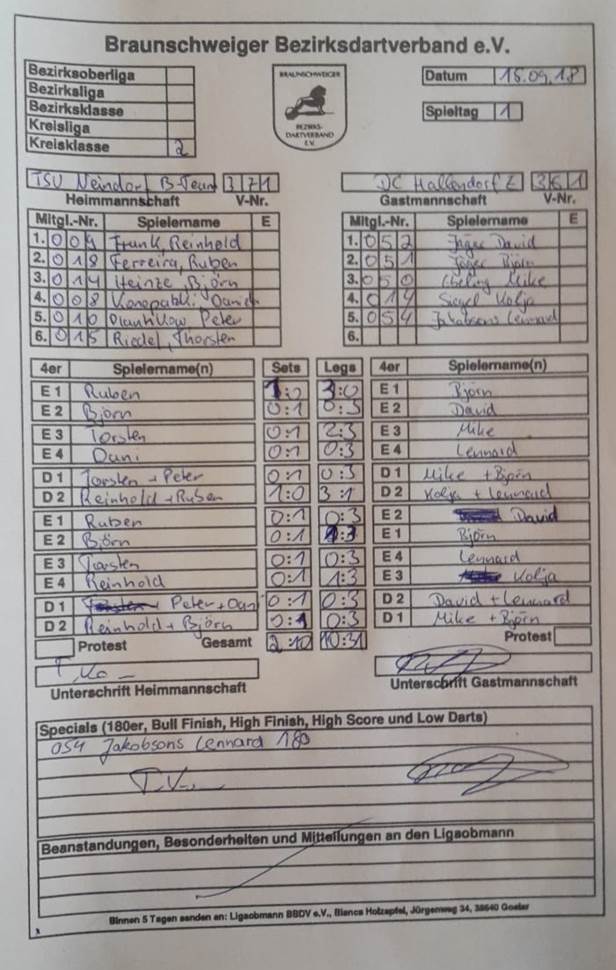 Braunschweiger Bezirksdartverband e.V.
Bezirksoberliga
Bezirksliga
Bezirksklasse
Kreisliga
Kreisklasse 2
BRAUNSCHWEIGER
BEZIRKS-
DARTVERBAND
E.V.
Datum 15.09.18
Spieltag 1
TSV Neindorf B-Team 371
Heimmannschaft V-Nr.
DC Hallendorf E 361
Gastmannschaft V-Nr.
Mitgl.-Nr. Spielername E
1. 004 Frank, Reinhold
2. 018 Ferreira, Ruben
3. 014 Heinze, Björn
4. 008
5. 010 Peter
6. 015 Riedel, Thorsten
Mitgl.-Nr. Spielername E
1. 052 Jäger David
2. 051 Jäger Björn
3. 050 Mike
4. 014 Siegel Kolja
5. 054 Jakobsons Lennard
6.
4er Spielername(n) Sets Legs 4er Spielername(n)
E 1 Ruben 1:0 3:0 E 1 Björn
E 2 Björn 0:1 0:3 E 2 David
E 3 Torsten 0:1 2:3 E 3 Mike
E 4 Dani 0:1 0:3 E 4 Lennard
D 1 Torsten + Peter 0:1 0:3 D 1 Mike + Björn
D 2 Reinhold + Ruben 1:0 3:1 D 2 Kolja + Lennard
E 1 Ruben 0:1 0:3 E 2 David
E 2 Björn 0:1 1:3 E 1 Björn
E 3 Torsten 0:1 0:3 E 4 Lennard
E 4 Reinhold 0:1 1:3 E 3 Kolja
D 1 Peter + Dani 0:1 0:3 D 2 David + Lennard
D 2 Reinhold + Björn 0:1 0:3 D 1 Mike + Björn
Protest Gesamt 2:10 10:31 Protest
Unterschrift Heimmannschaft
Unterschrift Gastmannschaft
Specials (180er, Bull Finish, High Finish, High Score und Low Darts)
054 Jakobsons Lennard 180
Beanstandungen, Besonderheiten und Mitteilungen an den Ligaobmann
Binnen 5 Tagen senden an: Ligaobmann BBDV e.V., Bianca Holzapfel, Jürgenweg 34, 38640 Goslar